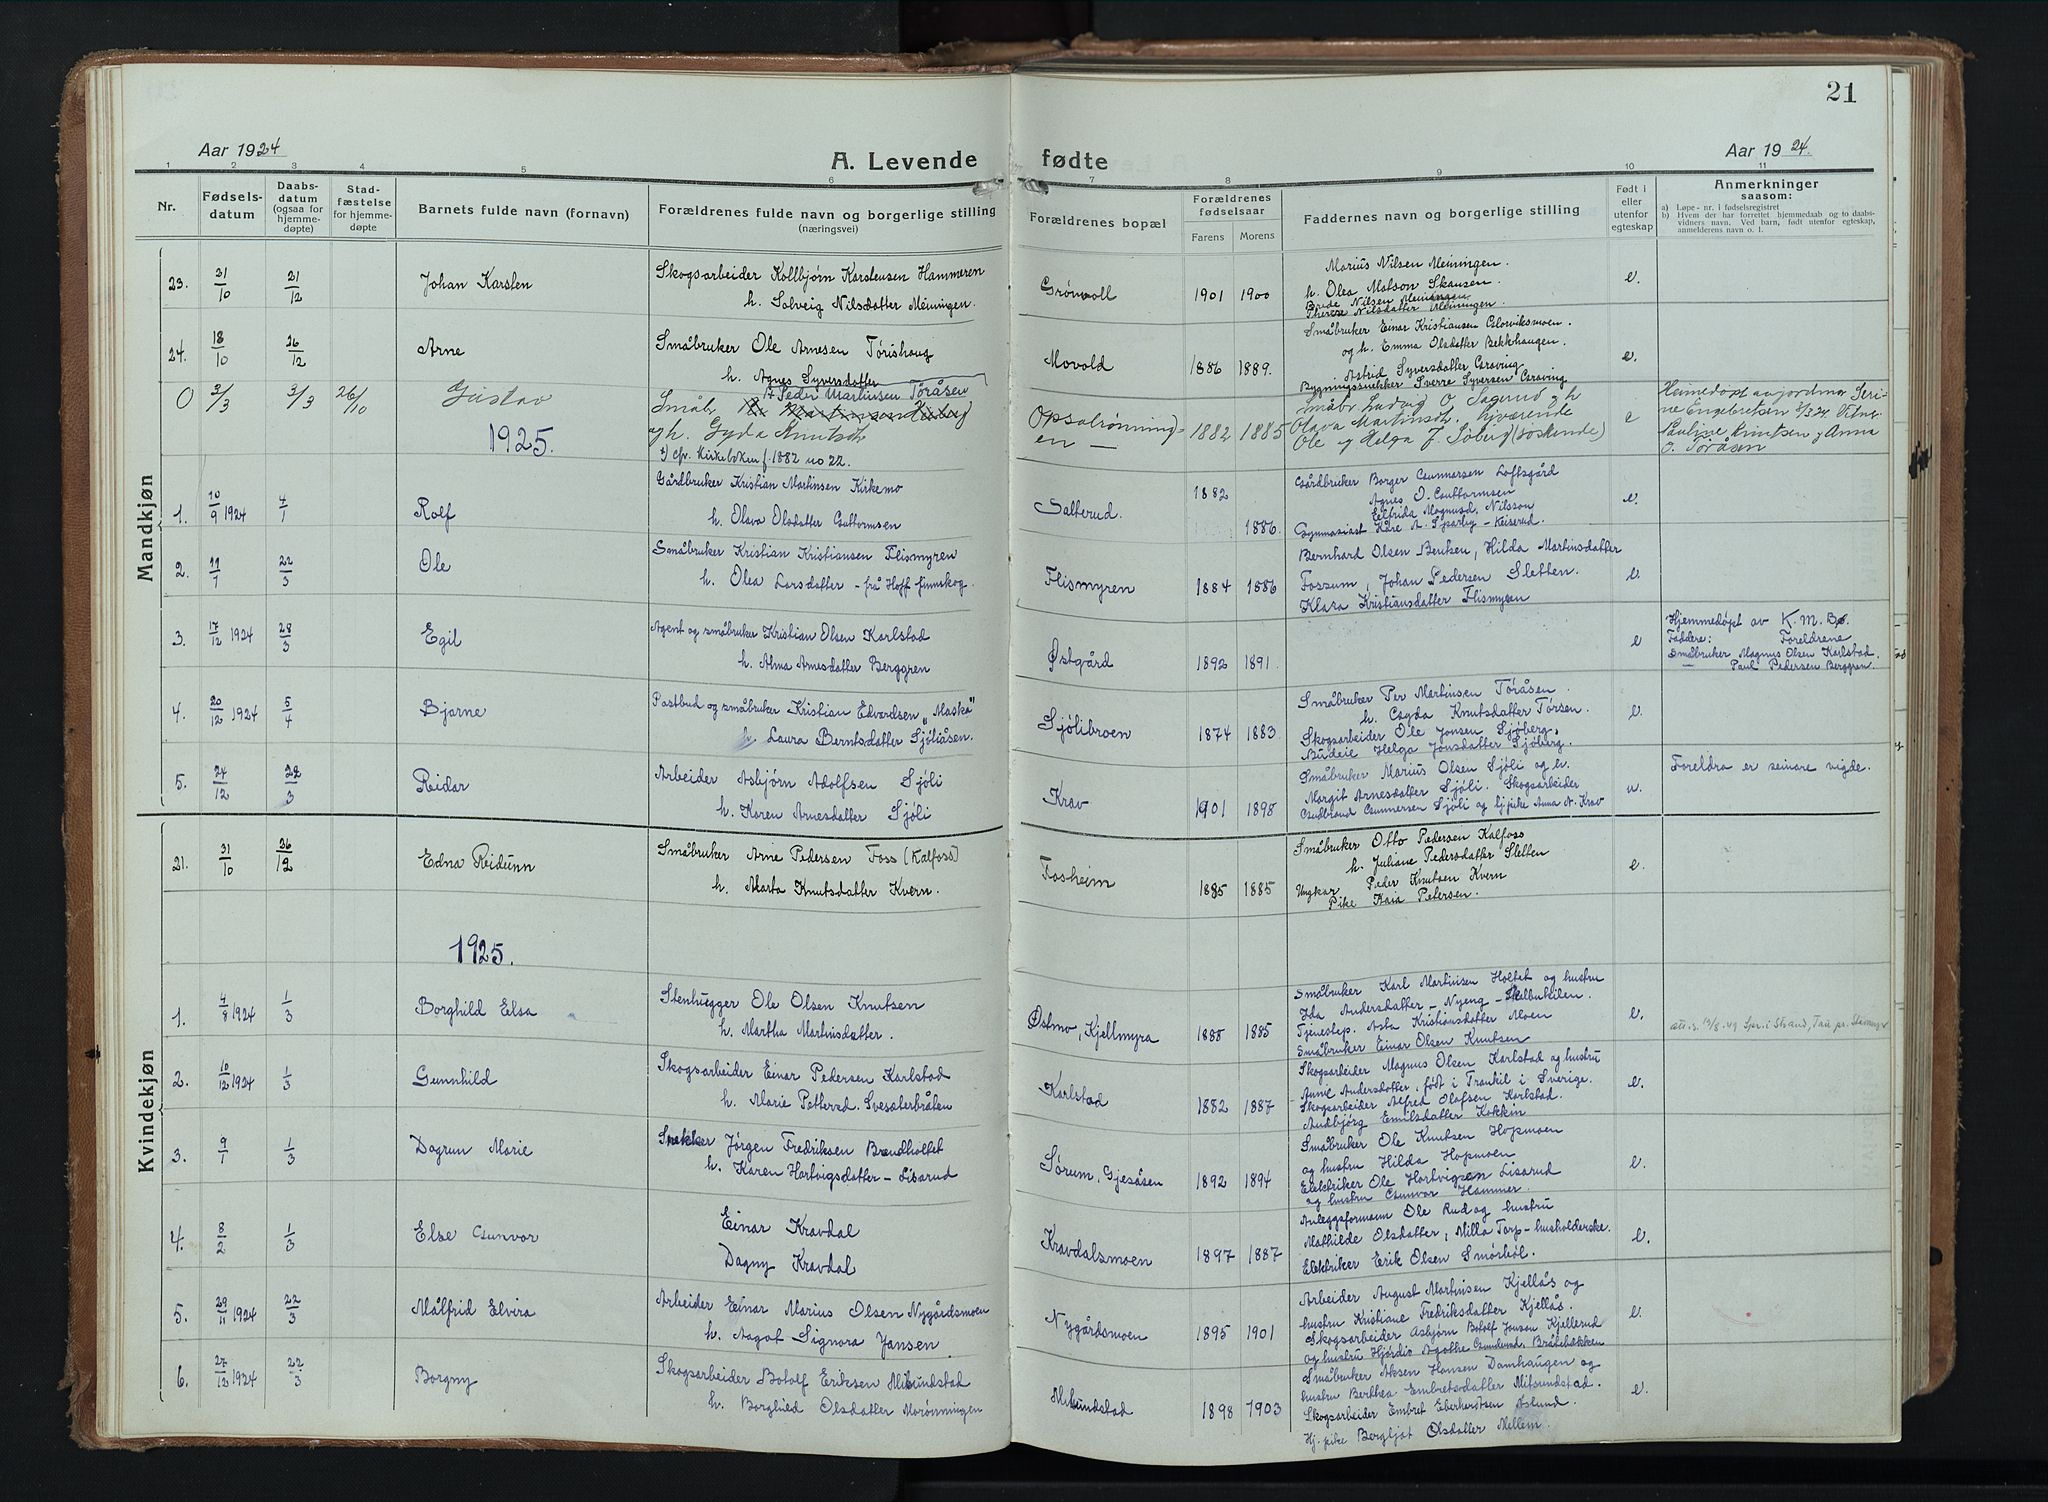 21
Aar 1924
A. Levende fødte
Aar 1924.
1 2 3 4 5 6 7 8 9 10 11
Nr.
Fødselsdatum
Daabsdatum (ogsaa for hjemmedøpte)
Stadfæstelse for hjemmedøpte
Barnets fulde navn (fornavn)
Forældrenes fulde navn og borgerlige stilling (næringsvei)
Forældrenes bopæl
Forældrenes fødselsaar
Farens Morens
Faddernes navn og borgerlige stilling
Født i eller utenfor egteskap
Anmerkninger saasom:
a) Løpe-nr. i fødselsregistret
b) Hvem der har forrettet hjemmedaab og to daabsvidners navn. Ved barn, født utenfor egteskap, anmelderens navn o. l.
Mandkjøn
23. 31/10 21/12 Johan Karsten
Skogsarbeider Kollbjørn Karstensen Hammeren
h. Solveig Nilsdatter Meiningen.
Grønvoll 1901 1900
Marius Nilsen Meiningen.
h. Olea Matson Skansen
Brude Nilsen Meiningen
Therese Nilsdatter Meiningen.
e.
24. 18/10 26/12 Arne
Småbruker Ole Arnesen Torishaug
h. Agnes Syversdatter
Movold 1886 1889.
Småbruker Einar Kristiansen Glorviksmoen.
og h. Emma Olsdatter Bekkhaugen
Astrid Syversdatter Graving
Bygningssnekker Sverre Syversen Graving
e.
0 3/3 3/3 26/10 Gustav
Peder Martinsen Toråsen
Småbr
og h. Gyda Knutsdtr
x) cfr. Kirkeboken f. 1882 no 22.
Opsalrønningen — 1882 1885
Småbr Ludvig O. Sagerud og h
Olava Martinsdtr. hjværende
Ole og Helga J. Sjøberg (søskende)
e
Hjemedøpt av jordmor Serine
Engebretsen 3/3 24 Vitner
Pauline Knutsen og Anna
O. Toråsen
1925.
1. 10/9 1924 4/1 Rolf
Gårdbruker Kristian Martinsen Kirkemo
h. Olava Olsdatter Guttormsen
Salterud. 1882 1886
Gårdbruker Borger Gunnarsen Loftsgård
Agnes O. Guttormsen
Elfrida Magnusd. Nilsson
Gymnasiast Kåre A. Sparby - Keiserud.
e.
2. 11/1 22/3 Ole
Småbruker Kristian Kristiansen Flismyren
h. Olea Larsdatter - frå Hoff finnskog.
Flismyren 1884 1886
Bernhard Olsen Benken, Hilda Martinsdatter
Fossum, Johan Pedersen Sletten
Klara Kristiansdatter Flismyren
e.
3. 17/12 1924 28/3 Egil
Agent og småbruker Kristian Olsen Karlstad
h. Alma Arnesdatter Berggren
Østgård 1892 1891.
e
Hjemmedøpt av K. M. Bø.
Faddere: Foreldrene
Småbruker Magnus Olsen Karlstad.
— Paul Pedersen Berggren.
4. 20/12 1924 5/4 Bjarne
Postbud og småbruker Kristian Edvardsen "Maska"
h. Laura Berntsdatter Sjøliåsen.
Sjølibroen 1874 1883
Småbruker Per Martinsen Toråsen.
h. Gyda Knutsdatter Torsen.
Skogsarbeider Ole Jonsen Sjøberg.
Budeie Helga Jonsdatter Sjøberg.
e.
5. 24/12 22/3 Reidar
Arbeider Asbjørn Adolfsen Sjøli
h. Karen Arnesdatter Sjøli
Krav 1901 1898
Småbruker Marius Olsen Sjøli og h.
Margit Arnesdatter Sjøli. Skogsarbeider
Gudbrand Gunnersen Sjøli og hj.pike Anna N. Krav
u.
Foreldra er seinare vigde.
Kvindekjøn
21. 31/10 26/12 Edna Reidunn
Småbruker Arne Pedersen Foss (Kalfoss)
h. Marta Knutsdatter Kvern.
Fosheim 1885 1885
Småbruker Otto Pedersen Kalfoss
h. Juliane Pedersdatter Sletten
Ungkar Peder Knutsen Kvern
Pike Kaia Petersen.
e.
1925.
1. 4/8 1924 1/3 Borghild Elsa
Stenhugger Ole Olsen Knutsen
h. Martha Martinsdatter.
Østmo, Kjellmyra 1888 1885
Småbruker Karl Martinsen Holtet og hustru
Ida Andersdatter - Nyeng -
Tjenestep. Asta Kristiansdatter Moen
Småbruker Einar Olsen Knutsen
e.
att. s. 13/8.49 Spr. i Strand, Tau pr. Stavanger
2. 10/12 1924 1/3 Gunnhild
Skogsarbeider Einar Pedersen Karlstad
h. Marie Pettersd. Svesæterbråten
Karlstad 1882 1887
Skogsarbeider Magnus Olsen Karlstad og hustru
Anne Andersdatter, født i Trankil i Sverige.
Skogsarbeider Alfred Olafsen Karlstad.
Audbjørg Emilsdatter Kokkin
e.
3. 9/1 1/3 Dagrun Marie
Snekker Jørgen Fredriksen Brendholtet
h. Karen Hartvigsdatter - Lisarud
Sørum, Gjesåsen 1892 1894
Småbruker Ole Knutsen Hopmoen
og hustru Hilda Hopmoen
Elektriker Ole Hartvigsen Lisarud
og hustru Gunvor Hammer.
e.
4. 8/2 1/3 Else Gunvor
Einar Kravdal
Dagny Kravdal
Kravdalsmoen 1897 1887
Anleggsformann Ole Rud og hustru
Mathilde Olsdatter, Milla Torp - husholderske.
Elektriker Erik Olsen Smørhol.
e.
5. 29/11 1924 22/3 Målfrid Elvira
Arbeider Einar Marius Olsen Nygårdsmoen
h. Aagot Signora Jansen
Nygårdsmoen 1895 1901
Arbeider August Martinsen Kjellås og
hustru Kristiane Fredriksdatter Kjellås.
Skogsarbeider Asbjørn Botolf Jonson Kjellerud
og hustru Hjørdis Agothe Gundersd. Bråtebakken
e.
6. 27/12 1924 22/3 Borgny
Skogsarbeider Botolf Eriksen Mitsundstad
h. Borghild Olsdatter Morønningen
Mitsundstad 1898 1903
Småbruker Aksen Hansen Damhaugen og
hustru Berthea Embretsdatter Mitsundstad.
Skogsarbeider Embret Eberhardsen Åslund.
Hj. pike Bergljot Olsdatter Mellem.
e.